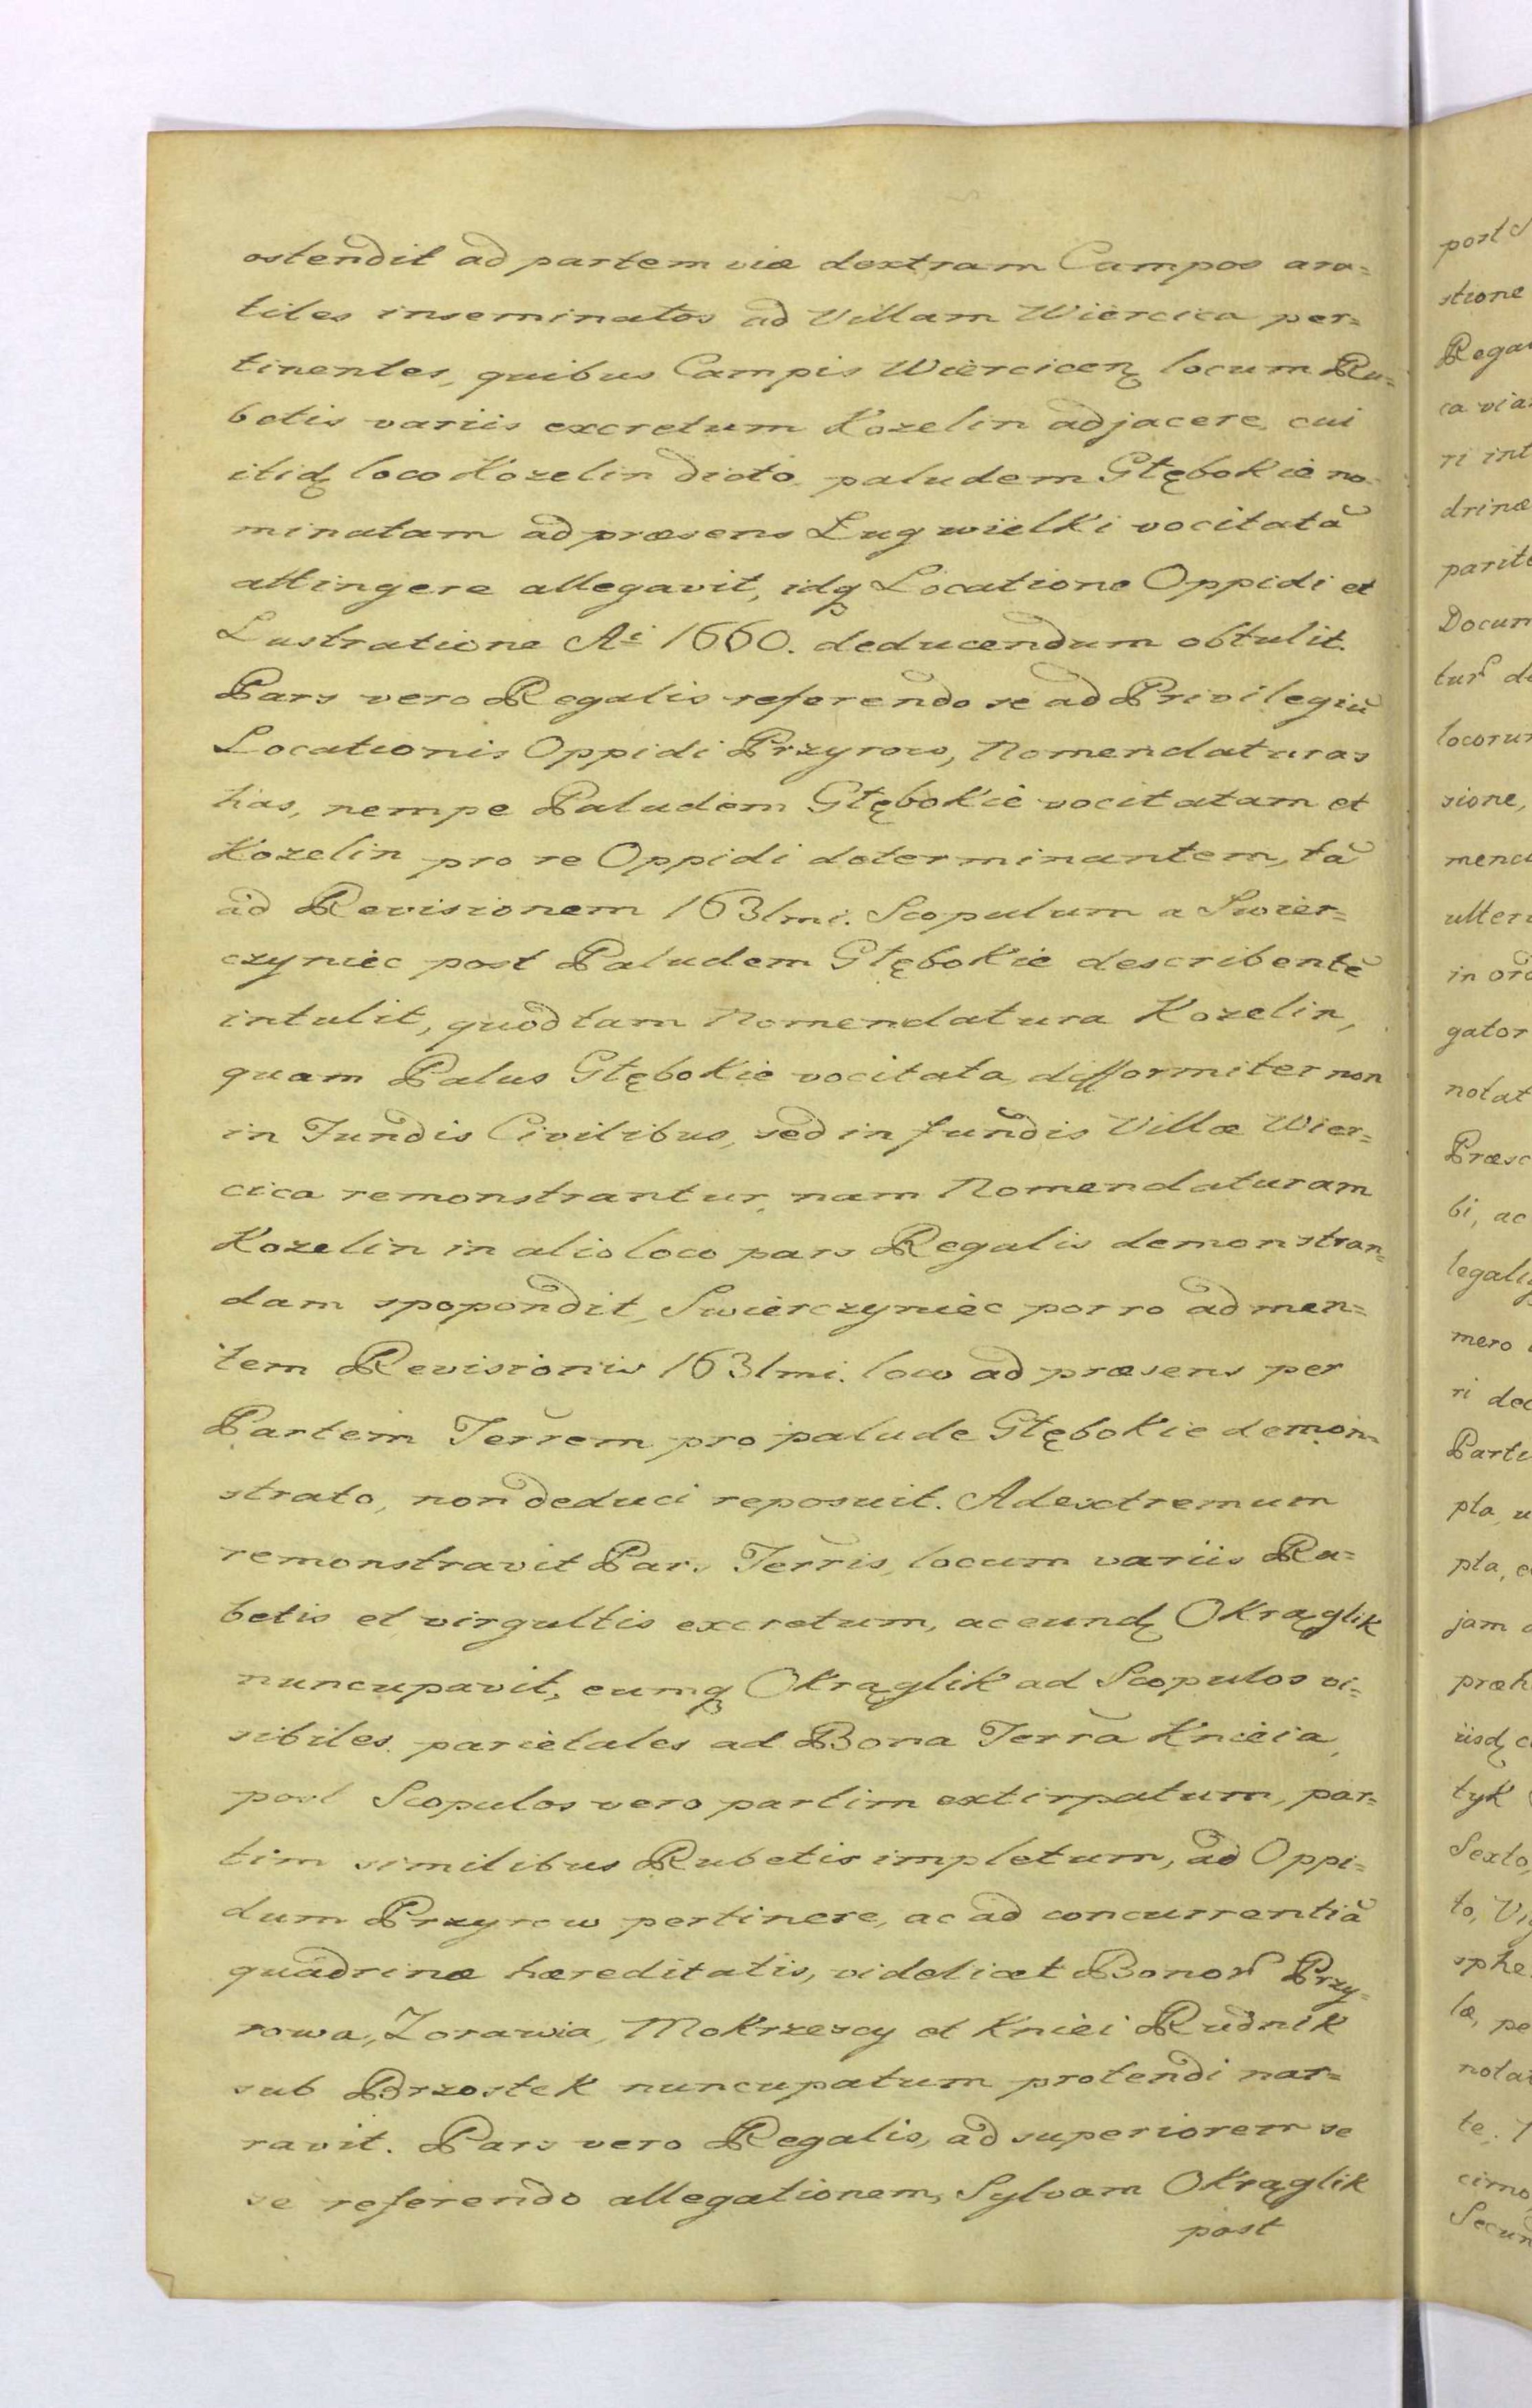 ostendit ad partem viæ dextram Campos ara=
tiles inseminatos ad Villam Wiercica per=
tinentes, quibus Campis Wiercicen̄ locum Ru=
betis variis excretum Kozelin adjacere, cui
itidę loco Kozelin dicto paludem Głębokie no=
minatam ad præsens Ług wielki vocitatã
attingere allegavit, idq Locatione Oppidi et
Lustratione Ai 1660. deducendum obtulit.
Pars vero Regalis referendo se ad Privilegiũ
Locationis Oppidi Przyrow, Nomendaturas
has, nempe Paludem Głębokie vocitatam et
Kozelin pro re Oppidi determinantem, tã
ad Revisionem 1631mi. Scopulum a Swier=
czyniec post Paludem Głębokie describentẽ
intulit, quod tam Nomendatura Kozelin,
quam Palus Głębokie vocitata, difformiter non
in Fundis Civilibus, sed in fundis Villæ Wier=
cica remonstrantur, nam Nomendaturam
Kozelin in alio loco pars Regalis demonstran=
dam spopondit, Swierczyniec porro ad men=
tem Revisionis 1631mi. loco ad præsens per
Partem Terrem pro palude Głębokie demon=
strato, non deduci reposuit. Ad extremum
remonstravit Pars Terris, locum variis Ru=
betis et virgultis excretum, ac eundę Okrąglik
nuncupavit, eumq Okrąglik ad Scopulos vi=
sibiles parietales ad Bona Terrã Knieia,
post Scopulos vero partim extirpatum, par=
tim similibus Rubetis impletum, ad Oppi=
dum Przyrow pertinere, ac ad concurrentiã
quadrinæ hæreditatis, videlicet Bonor Przy=
rowa, Zorawia, Mokrzeszy et Kniei Rudnik
sub Brzostek nuncupatum protendi nar=
ravit. Pars vero Regalis, ad superiorem se
se referendo allegationem, Sylvam Okrąglik
post